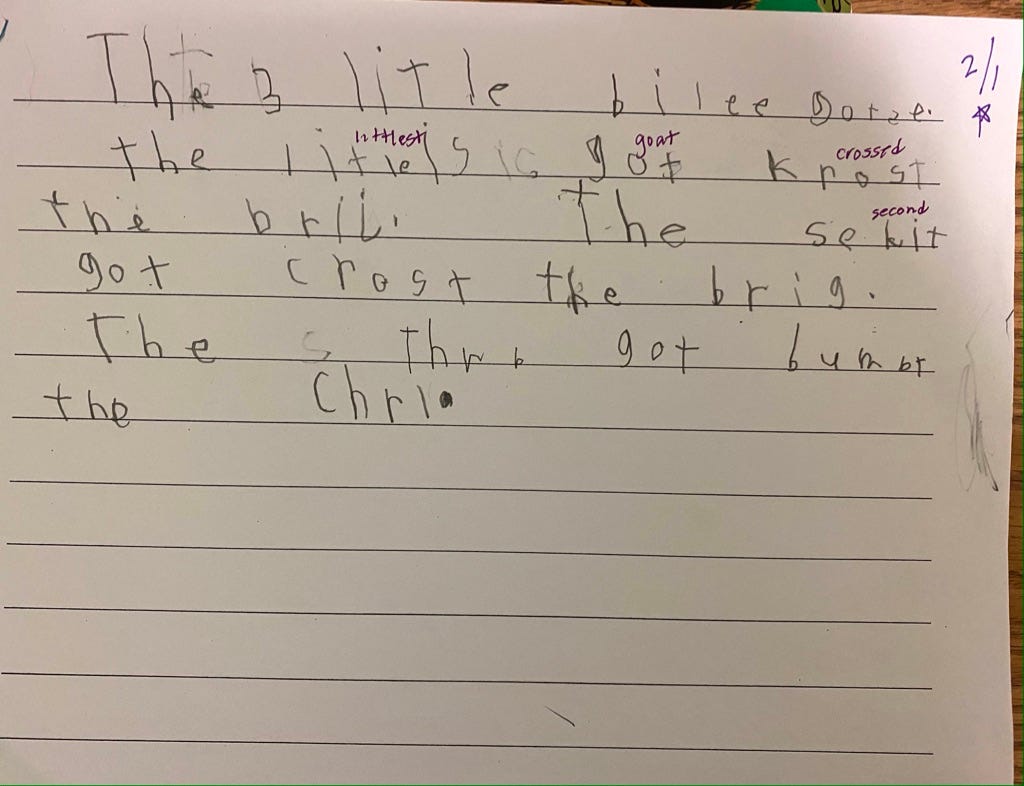 The 3 litle bilee gotze. 2/1
littlest goat crossed
the litlelsic got krost
second
the brij. The sekit
got crost the brig.
The s Thrb got bumbt
the Chrl.